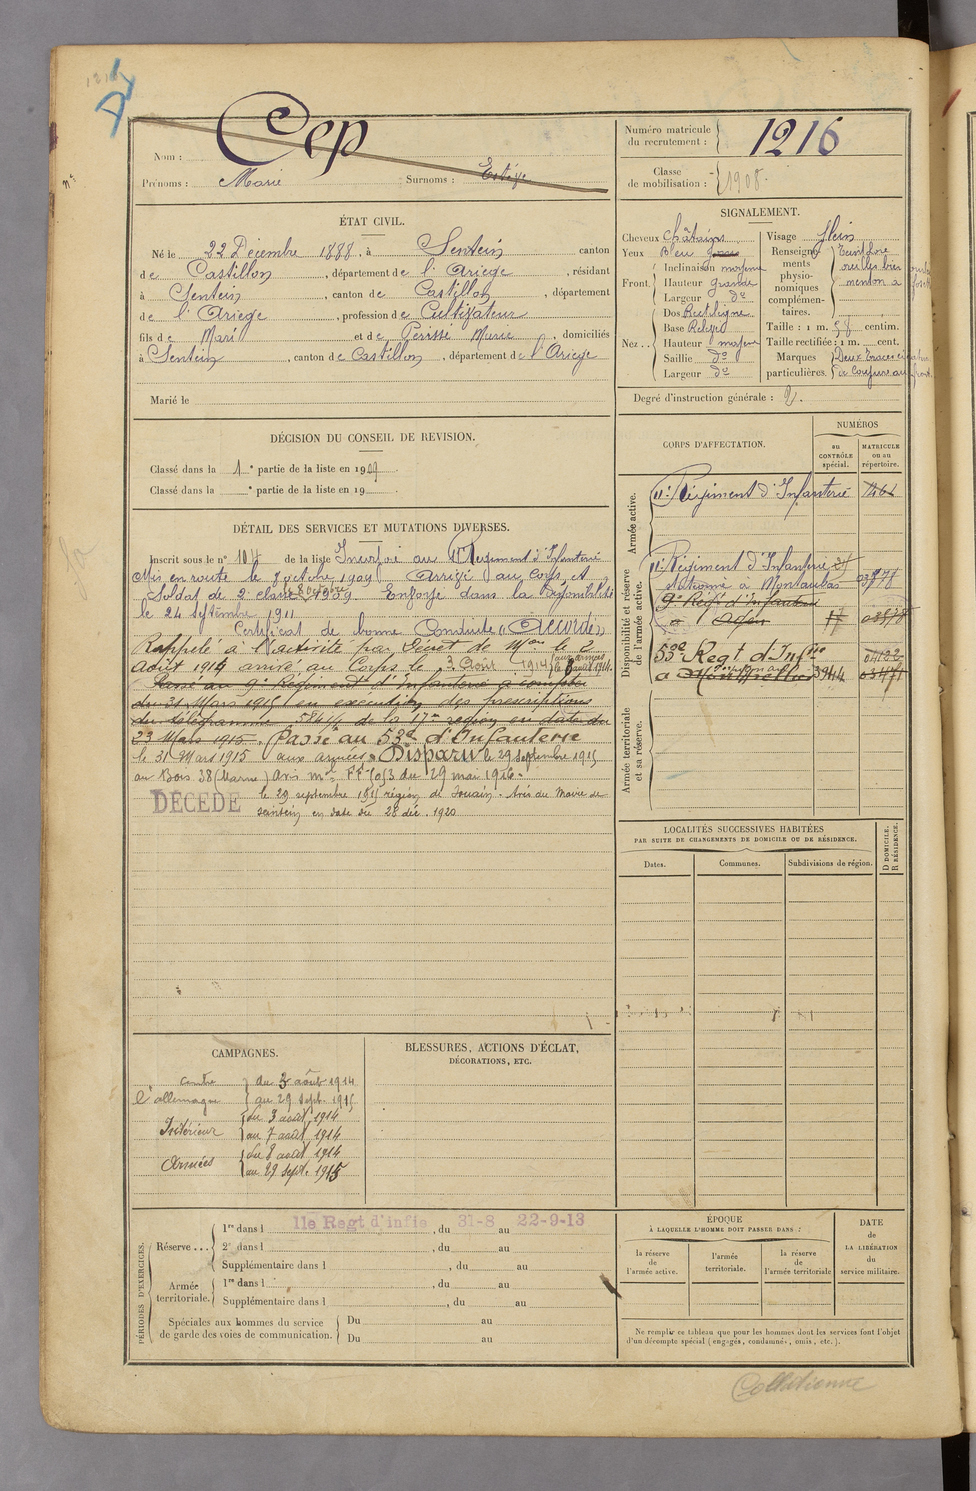 1216
Cep
Nom :
Prénoms : Marie Surnoms :
Numéro matricule du recrutement : 1216
Classe de mobilisation : 1908.
ÉTAT CIVIL.
Né le 22 Décembre 1888, à Sentein canton
de Castillon, département de l'Ariège, résidant
à Sentein, canton de Castillon, département
de l'Ariège, profession de Cultivateur
fils de Mari et de Périssé Marie domiciliés
à Sentein, canton de Castillon, département de l'Ariège
Marié le
SIGNALEMENT.
Cheveux châtains
Yeux Bleu
Front. Inclinaison moyenne
Hauteur grande
Largeur do
Nez .. Dos Rectiligne
Base Relevé
Hauteur moyenne
Saillie do
Largeur do
Visage plein
Renseignements physionomiques complémentaires. menton à
Taille : 1 m. 58 centim.
Taille rectifiée : 1 m. cent.
Marques particulières. Deux traces
Degré d'instruction générale : 2.
DÉCISION DU CONSEIL DE REVISION.
Classé dans la 1e partie de la liste en 1909
Classé dans la e partie de la liste en 19
DÉTAIL DES SERVICES ET MUTATIONS DIVERSES.
Inscrit sous le n° 104 de la liste Incorporé au 11e Régiment d'Infanterie
Mis en route le 8 octobre 1909 Arrivé au corps et
Soldat de 2e classe 8 octobre 1909. Envoyé dans la disponibilité
le 24 septembre 1911
Certificat de bonne Conduite "Accordé"
Rappelé à l'activité par Décret de Mon le 2
Août 1914 arrivé au Corps le 3 Août 1914 aux armées le 8 août 1914.
Passé au 9e Régiment d'Infanterie à compter
du 31 Mars 1915 en exécution des prescriptions
du télégramme 5844 de la 17e région en date du
23 Mars 1915. Passé au 53e d'Infanterie
le 31 Mars 1915 aux armées Disparu le 29 septembre 1915
au Bois 38 (Marne) avis mel FF 7053 du 29 mai 1916.
DÉCÉDÉ le 29 septembre 1915 région de Souain. Avis du Maire de
Sentein en date du 28 déc. 1920
CORPS D'AFFECTATION.
NUMÉROS
au CONTRÔLE spécial.
MATRICULE ou au répertoire.
Armée active.
11e Régiment d'Infanterie
Disponibilité et réserve de l'armée active.
11e Régiment d'Infanterie
stationné à Montauban
9e Régt d'Infanterie
à Agen
53e Regt d'Infrie
Armée territoriale et sa réserve.
LOCALITÉS SUCCESSIVES HABITÉES
PAR SUITE DE CHANGEMENTS DE DOMICILE OU DE RÉSIDENCE.
D DOMICILE.
R RÉSIDENCE.
Dates.
Communes.
Subdivisions de région.
CAMPAGNES.
contre l'allemagne du 3 août 1914
au 29 sept. 1915
Intérieur du 3 août 1914
au 7 août 1914
Armées du 8 août 1914
au 29 sept. 1915
BLESSURES, ACTIONS D'ÉCLAT,
DÉCORATIONS, ETC.
PÉRIODES D'EXERCICES.
Réserve ... 1re dans l 11e Regt d'infie, du 31-8 au 22-9-13
2e dans l , du au
Supplémentaire dans l , du au
Armée territoriale. 1re dans l , du au
Supplémentaire dans l , du au
Spéciales aux hommes du service
de garde des voies de communication. Du au
Du au
ÉPOQUE
À LAQUELLE L'HOMME DOIT PASSER DANS :
la réserve de l'armée active.
l'armée territoriale.
la réserve de l'armée territoriale
DATE de LA LIBÉRATION du service militaire.
Ne remplir ce tableau que pour les hommes dont les services font l'objet
d'un décompte spécial (engagés, condamnés, omis, etc.).